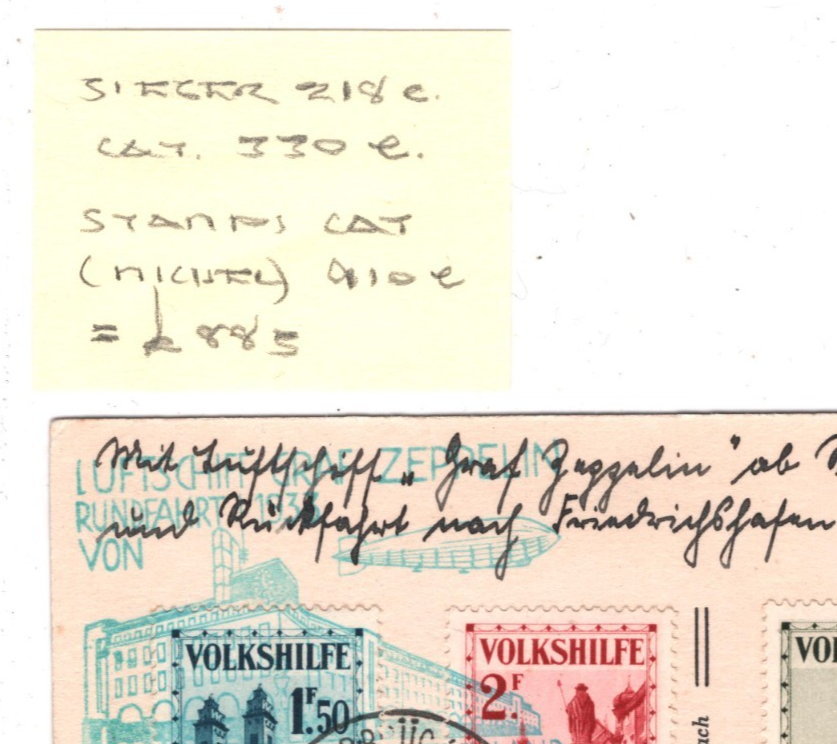 SIEGER 218 e.
CAT. 330 e.
STAMPS CAT
(MICHEL) 910 e
= £885
Mit Luftschiff „Graf Zeppelin" ab
und Rückfahrt nach Friedrichshafen
LUFTSCHIFF GRAF ZEPPELIN
RUNDFAHRT 193
VON
VOLKSHILFE
1F.50
VOLKSHILFE
2F
VOL